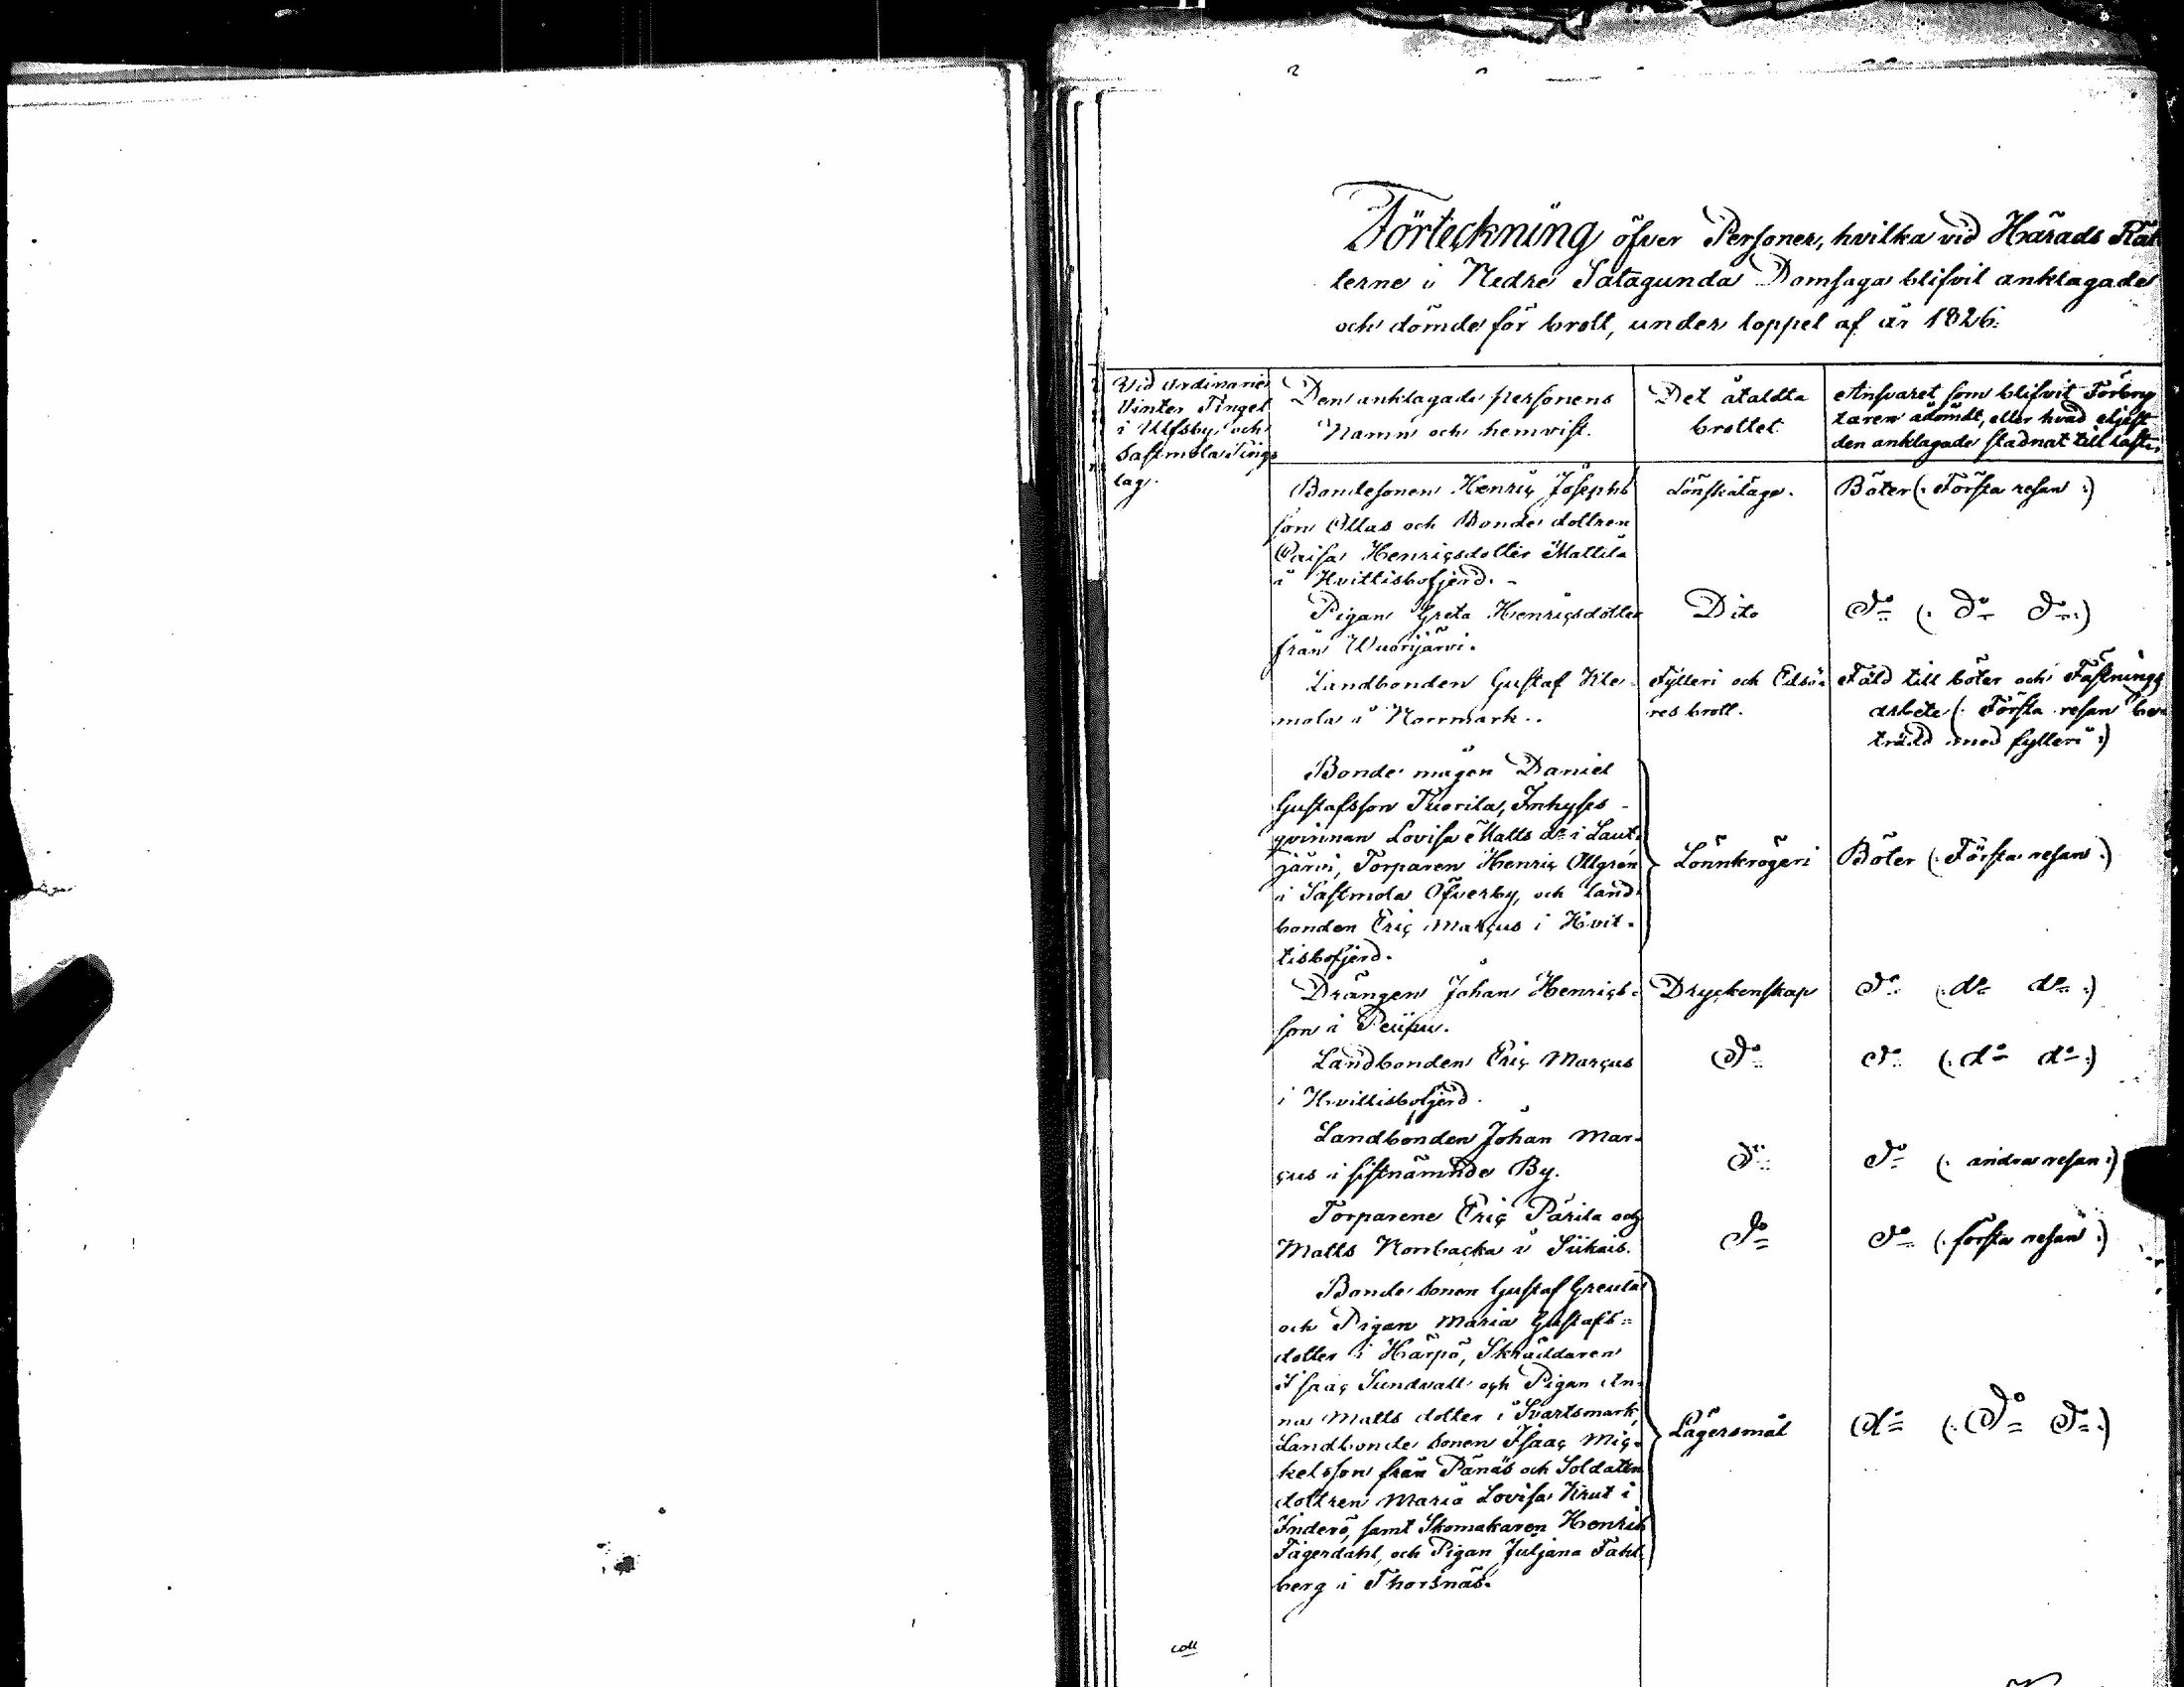 Förteckning öfver Personer, hvilka vid Härads Rät
terne i Nedre Satagunda Domsaga blifvit anklagade
och dömde för brott, under loppet af år 1826.
Vid ordinarie
Vinter Tinget
i Ulfsby och
Sastmola Tings
lag.
Den anklagade personens
Namn och hemvist.
Det åtaldta
brottet
Ansvaret som blifvit Förbry
taren ådömdt, eller hvad eljest
den anklagade stadnat till last.
Bondesonen Henriç Josephs
son Ollas och Bonde dottren
Caisa Henriçsdotter Mattila
i Hvittisbofjerd.
Lönskaläge.
Böter (: Första resan :)
Pigan Greta Henriçsdotter
från Wuorijärvi.
Dito
Do (: Do Do :)
Landbonden Gustaf Kle-
mola i Norrmark..
Fylleri och Edsö-
res brott.
Fäld till böter och Fästnings
arbete (: Första resan be-
trädd med fylleri :)
Bonde mågen Daniel
Gustafsson Tuorila, Inhyses-
qvinnan Lovisa Matts dr i Laut-
järvi, Torparen Henriç Ollgrén
i Sastmola Öfverby, och land-
bonden Eriç Marçus i Hvit-
tisbofjerd.
Lönnkrögeri
Böter (: Första resan :)
Drängen Johan Henriçs-
son i Peipu.
Dryckenskap
Do (: do do :)
Landbonden Eriç Marçus
i Hvittisbofjerd.
Do
Do (: do do :)
Landbonden Johan Mar-
çus i sistnämnde By.
Do
Do (: andra resan :)
Torparene Eriç Pärila och
Matts Norrbacka i Siikais.
Do
Do (: första resan :)
Bonde sonen Gustaf Greula
och Pigan Maria Gustafs=
dotter i Härpö, Skräddaren
Isaaç Sundvall och Pigan An-
na Matts dotter i Svartsmark,
Landbonde sonen Isaaç Miç-
kelsson från Pånäs och Soldaten
dottren Maria Lovisa Krut i
Inderö, samt Skomakaren Henrik
Fagerdahl, och Pigan Juljana Fahl
berg i Thorsnäs.
Lägersmål
do (: Do Do :)
coll